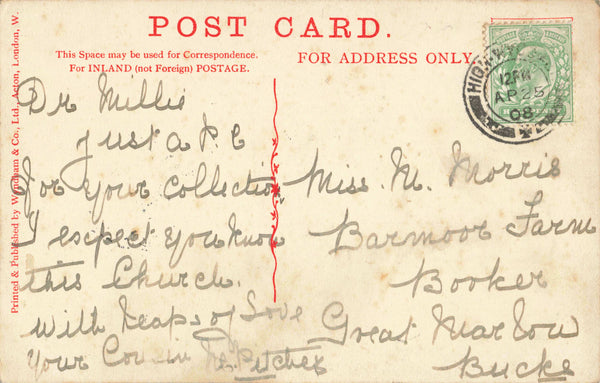 POST CARD.
This Space may be used for Correspondence.
For INLAND (not Foreign) POSTAGE.
FOR ADDRESS ONLY.
Printed & Published by Wyndham & Co., Ltd., Acton, London, W.
12PM
AP 25
08
Dr Millie
just a P C
for your collection
I expect you know
this Church.
With heaps of Love
your Cousin
Miss. M. Morris
Barmoor Farm
Booker
Great Marlow
Bucks